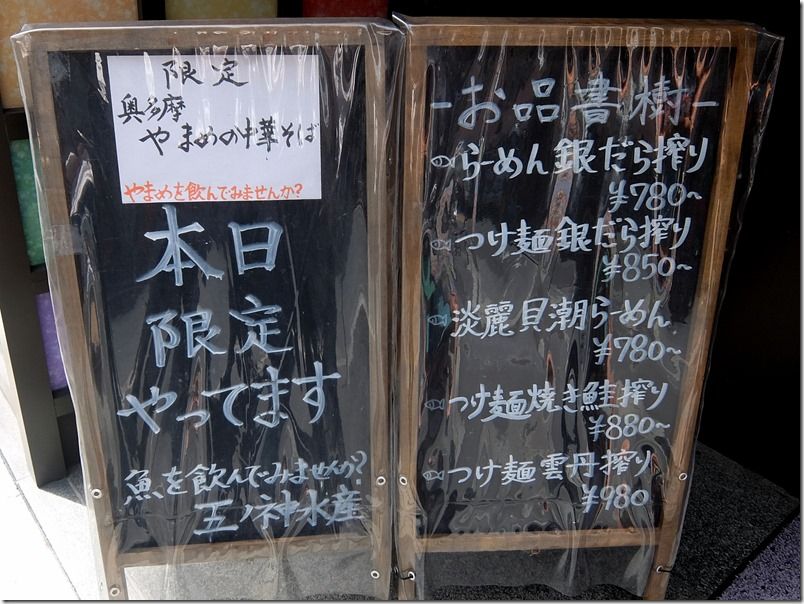 限定
奥多摩
やまめの中華そば
やまめを飲んでみませんか?
本日
限定
やってます
魚を飲んでみませんか?
五ノ神水産
-お品書樹-
らーめん銀だら搾り
¥780~
つけ麺銀だら搾り
¥850~
淡麗貝潮らーめん
¥780~
つけ麺焼き鮭搾り
¥880~
つけ麺雲丹搾り
¥980